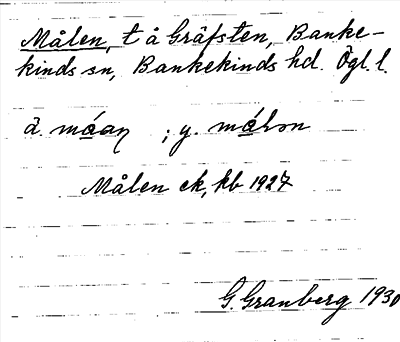 Målen, t å Gräfsten, Banke-
kinds sn, Bankekinds hd. Ögl. l.
ä. måan ; y. målon
Målen ek, kb 1927
G. Granberg 1930